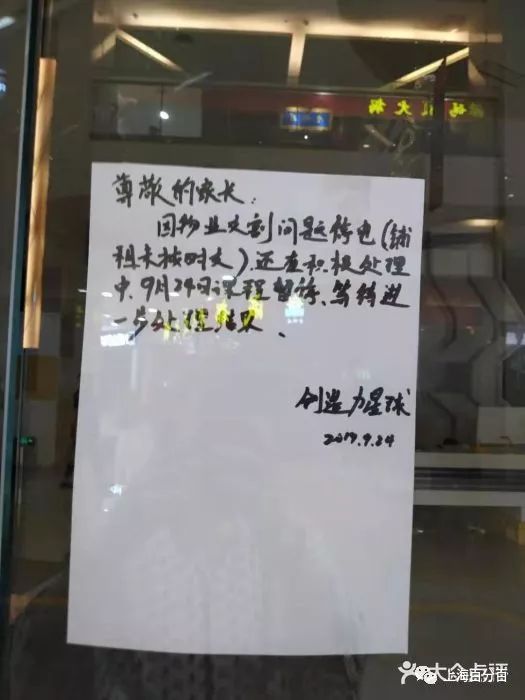 尊敬的家长：
因物业欠割问题停电（铺
租未按时交）还在积极处理
中、9月24日课程暂停、等待进
一步处理结果、
创造力星球
2019.9.24
大众点评
上海百分百